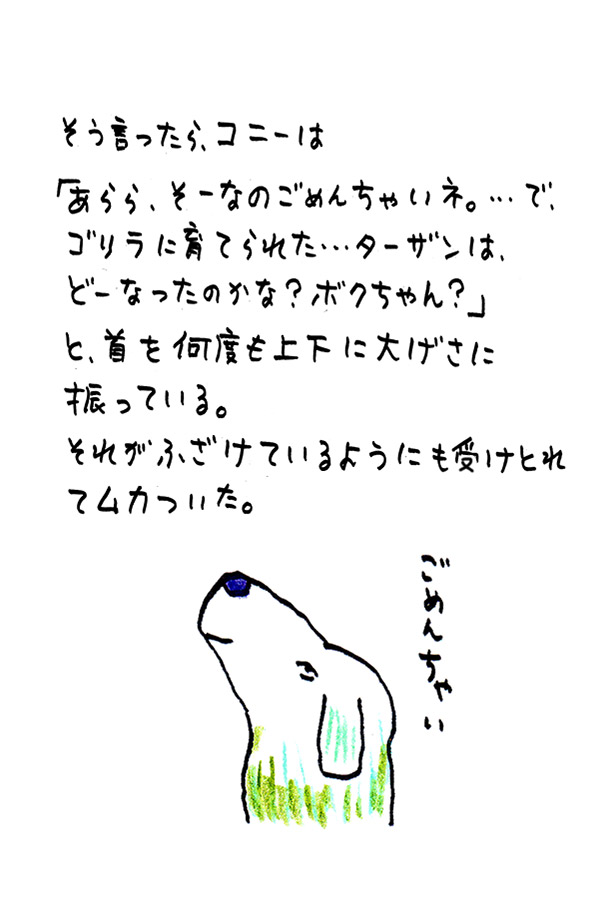 そう言ったら、コニーは
「あらら、そーなのごめんちゃいネ。…で、
ゴリラに育てられた…ターザンは、
どーなったのかな？ボクちゃん？」
と、首を何度も上下に大げさに
振っている。
それがふざけているようにも受けとれ
てムカついた。
ごめんちゃい